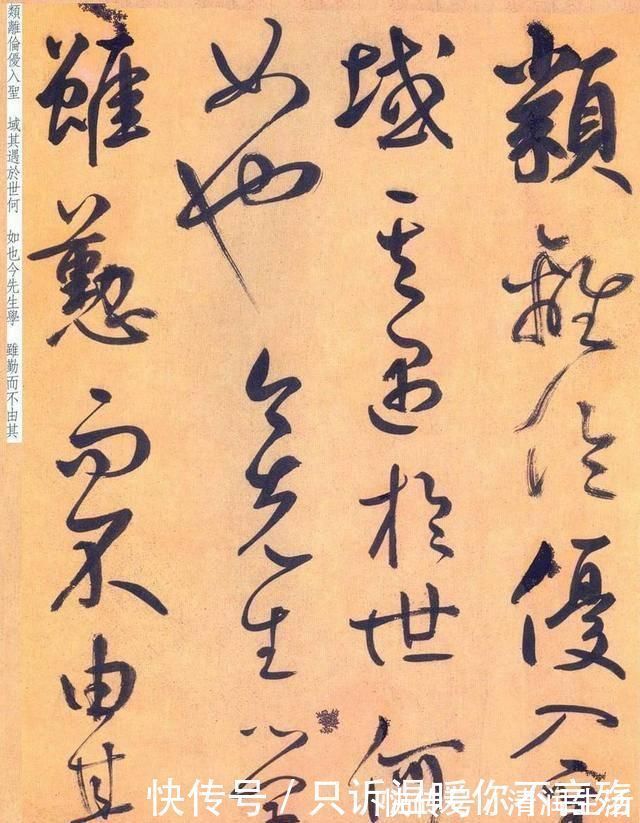 類離倫優入聖
域其遇於世何
如也今先生學
雖懃而不由其
類離倫優入聖 域其遇於世何 如也今先生學 雖勤而不由其
快传号 / 只诉温暖你不言殇